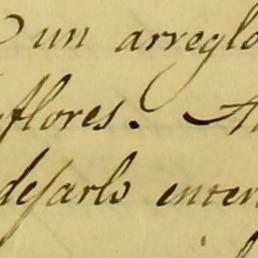 un arreglo
flores. A
desarlo enter